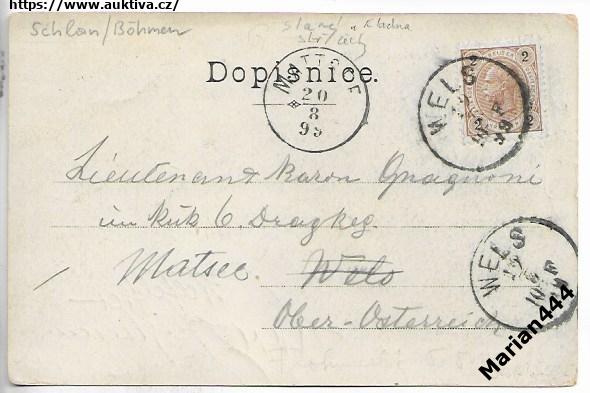 https://www.auktiva.cz/
Schlan/Böhmen
Slaný u Kladna
Dopisnice.
MATTSEE
20
8
99
WELS
2 2
2 2
Lieutenand Baron Gnagnoni
im kuk 6. Dragkeg.
Matsee Wels
Ober-Österreich
WELS
Marian444